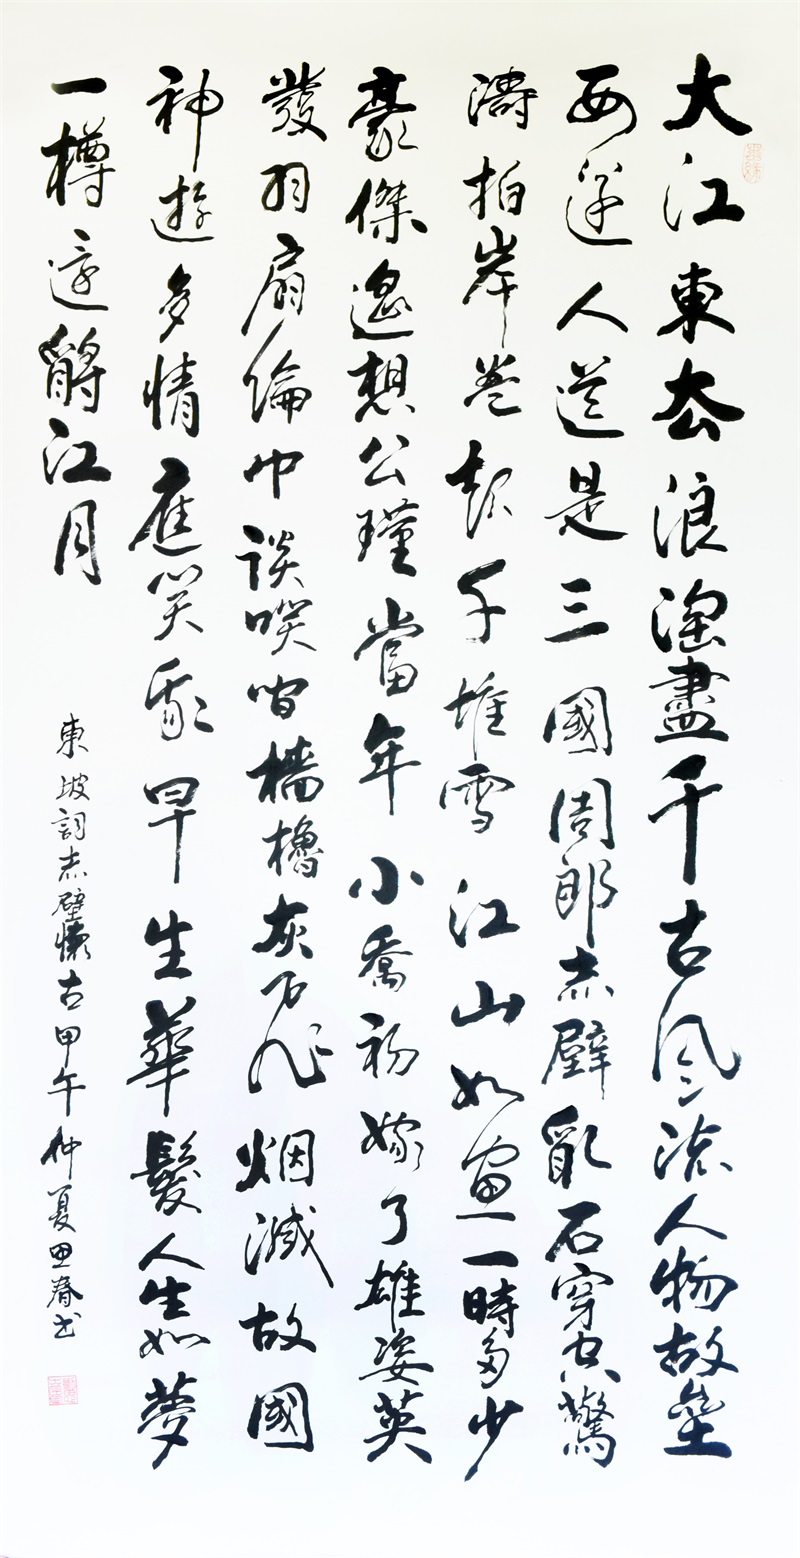 大江東去浪淘盡千古風流人物故壘
西邊人道是三國周郎赤壁亂石穿空驚
濤拍岸卷起千堆雪江山如畫一時多少
豪傑遙想公瑾當年小喬初嫁了雄姿英
發羽扇綸巾談咲間檣櫓灰飛烟滅故國
神遊多情應笑我早生華髮人生如夢
一樽還酹江月
東坡詞赤壁懷古甲午仲夏春书